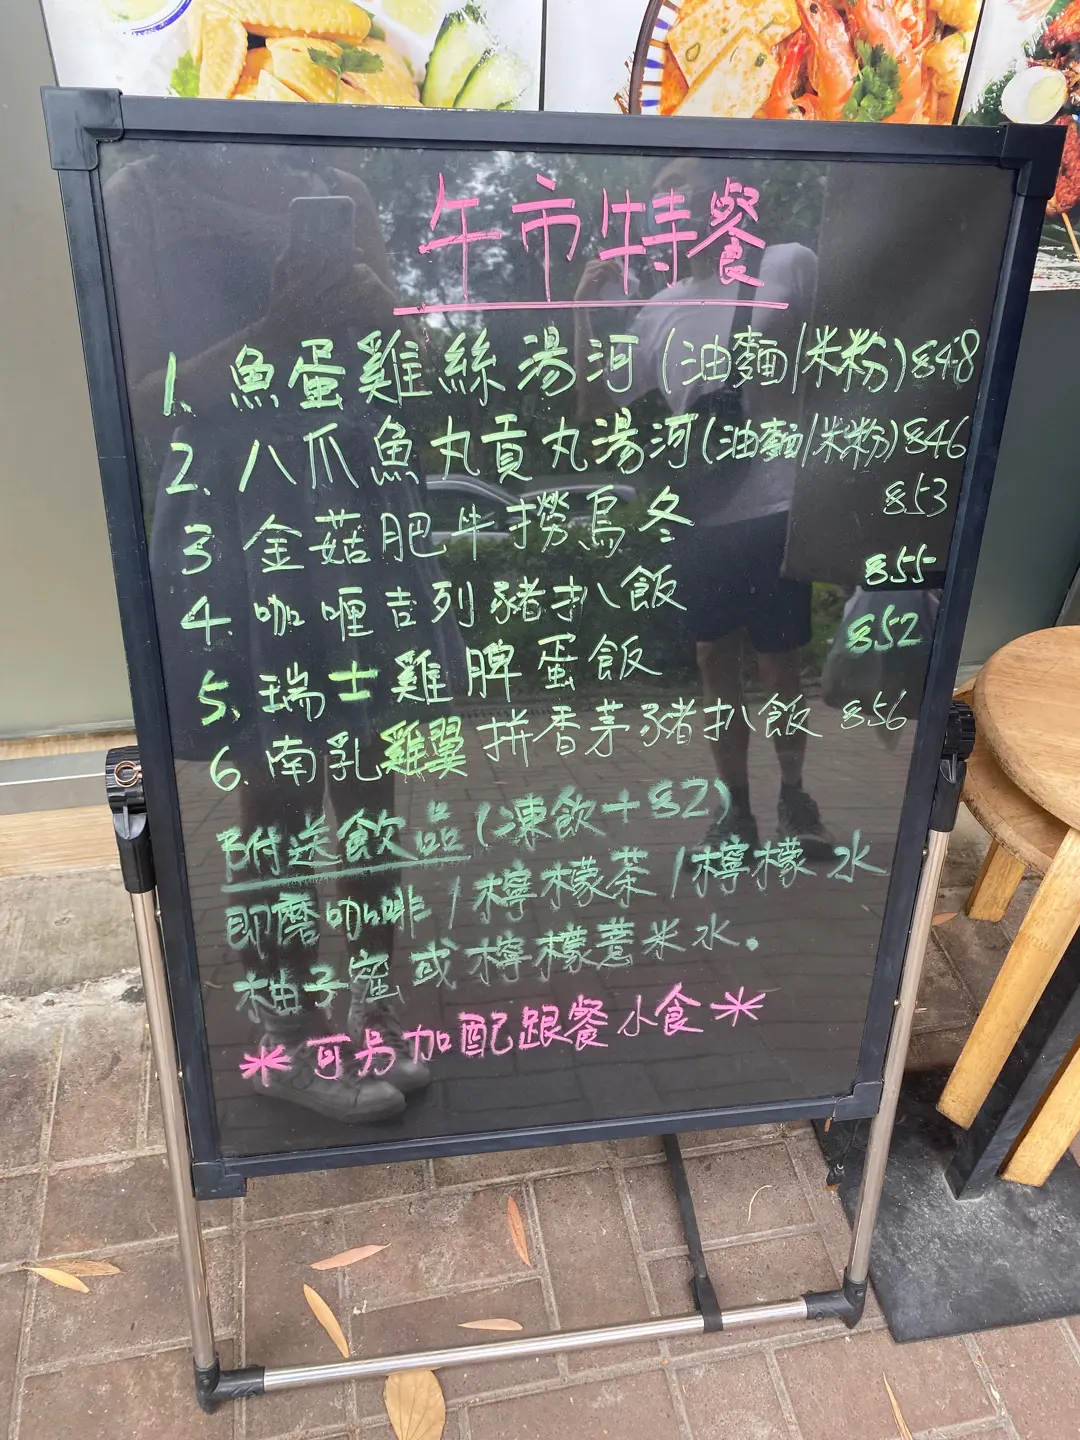 午市特餐
1. 魚蛋雞絲湯河(油麵/米粉)$48
2. 八爪魚丸貢丸湯河(油麵/米粉)$46
3 金菇肥牛撈烏冬 $53
4. 咖喱吉列豬扒飯 $55
5. 瑞士雞脾蛋飯 $52
6. 南乳雞翼拼香茅豬扒飯 $56
附送飲品(凍飲+$2)
即磨咖啡/檸檬茶/檸檬水
柚子蜜或檸檬薏米水.
*可另加配跟餐小食*